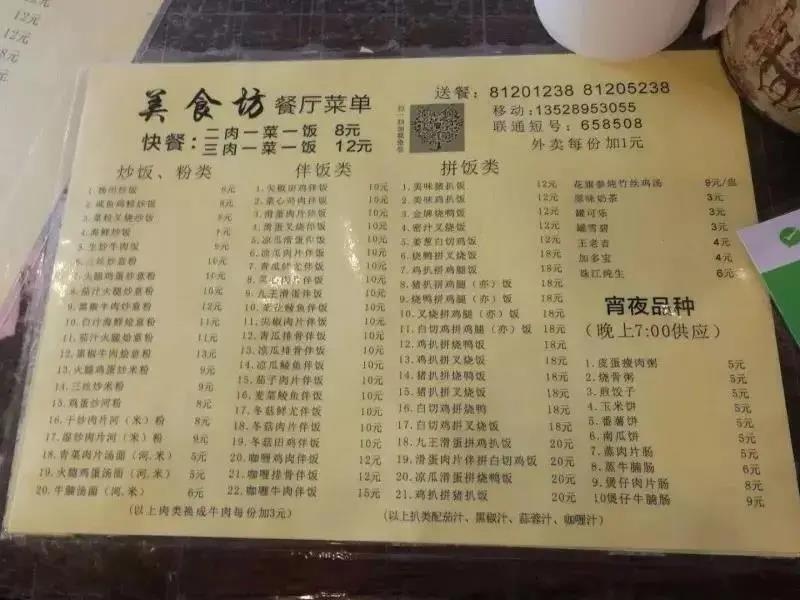 12元
12元
8元
美食坊 餐厅菜单
快餐：二肉一菜一饭 8元
三肉一菜一饭 12元
送餐：81201238 81205238
移动：13528953055
联通短号：658508
外卖每份加1元
炒饭、粉类
1.扬州炒饭 8元
2.咸鱼鸡粒炒饭 8元
3.菜粒叉烧炒饭 9元
4.海鲜炒饭
5.生炒牛肉饭 9元
6.三丝炒意粉 10元
7.火腿鸡蛋炒意粉 10元
8.茄汁火腿炒意粉 10元
9.黑椒牛肉炒意粉 12元
10.白汁海鲜烩意粉 11元
11.茄汁火腿烩意粉 11元
12.黑椒牛肉烩意粉 13元
13.火腿鸡蛋炒米粉 9元
14.三丝炒米粉 9元
15.鸡蛋炒河粉 8元
16.干炒肉片河（米）粉 8元
17.湿炒肉片河（米）粉 9元
18.青菜肉片汤面（河.米） 5元
19.火腿鸡蛋汤面（河.米） 5元
20.牛腩汤面（河.米） 6元
（以上肉类换成牛肉每份加3元）
伴饭类
1.尖椒田鸡伴饭 10元
2.菜心鸡肉伴饭 10元
3.滑蛋肉片伴饭 10元
4.滑蛋叉烧伴饭 10元
5.凉瓜滑蛋伴饭 10元
6.凉瓜肉片伴饭 10元
7.青瓜鱿鱼伴饭 10元
8.菜心 肉伴饭 10元
9.九王滑蛋伴饭 10元
10.菜心鲮鱼伴饭 10元
11.尖椒肉片伴饭 10元
12.青瓜排骨伴饭 10元
13.凉瓜排骨伴饭 10元
14.凉瓜鲮鱼伴饭 10元
15.茄子肉片伴饭 10元
16.麦菜鲮鱼伴饭 10元
17.冬菇鲜尤伴饭 10元
18.冬菇肉片伴饭 10元
19.冬菇田鸡伴饭 10元
20.咖喱鸡肉伴饭 12元
21.咖喱排骨伴饭 12元
22.咖喱牛肉伴饭 15元
拼饭类
1.美味猪扒饭 12元
2.美味鸡扒饭 12元
3.金牌烧鸭饭 12元
4.密汁叉烧饭 12元
5.姜葱白切鸡饭 12元
6.烧鸭拼鸡腿饭 18元
7.鸡扒拼鸡腿饭 18元
8.猪扒拼鸡腿（亦）饭 18元
9.烧鸭拼鸡腿（亦）饭 18元
10.叉烧拼鸡腿（亦）饭 18元
11.白切鸡拼鸡腿（亦）饭 18元
12.鸡扒拼烧鸭饭 18元
13.鸡扒拼叉烧饭 18元
14.猪扒拼烧鸭饭 18元
15.猪扒拼叉烧饭 18元
16.白切鸡拼烧鸭 18元
17.白切鸡拼叉烧饭 18元
18.九王滑蛋拼鸡扒饭 20元
19.滑蛋肉片伴拼白切鸡饭 20元
20.凉瓜滑蛋拼烧鸭饭 20元
21.鸡扒拼猪扒饭 20元
（以上扒类配茄汁、黑椒汁、蒜蓉汁、咖喱汁）
花旗参炖竹丝鸡汤 9元/盅
原味奶茶 3元
罐可乐 3元
罐雪碧 3元
王老吉 4元
加多宝 4元
珠江纯生 6元
宵夜品种
（晚上7:00供应）
1.皮蛋瘦肉粥 5元
2.烧骨粥 5元
3.煎饺子 5元
4.玉米饼 5元
5.番薯饼 5元
6.南瓜饼 5元
7.蒸肉片肠 5元
8.蒸牛腩肠 6元
9.煲仔肉片肠 8元
10煲仔牛腩肠 9元